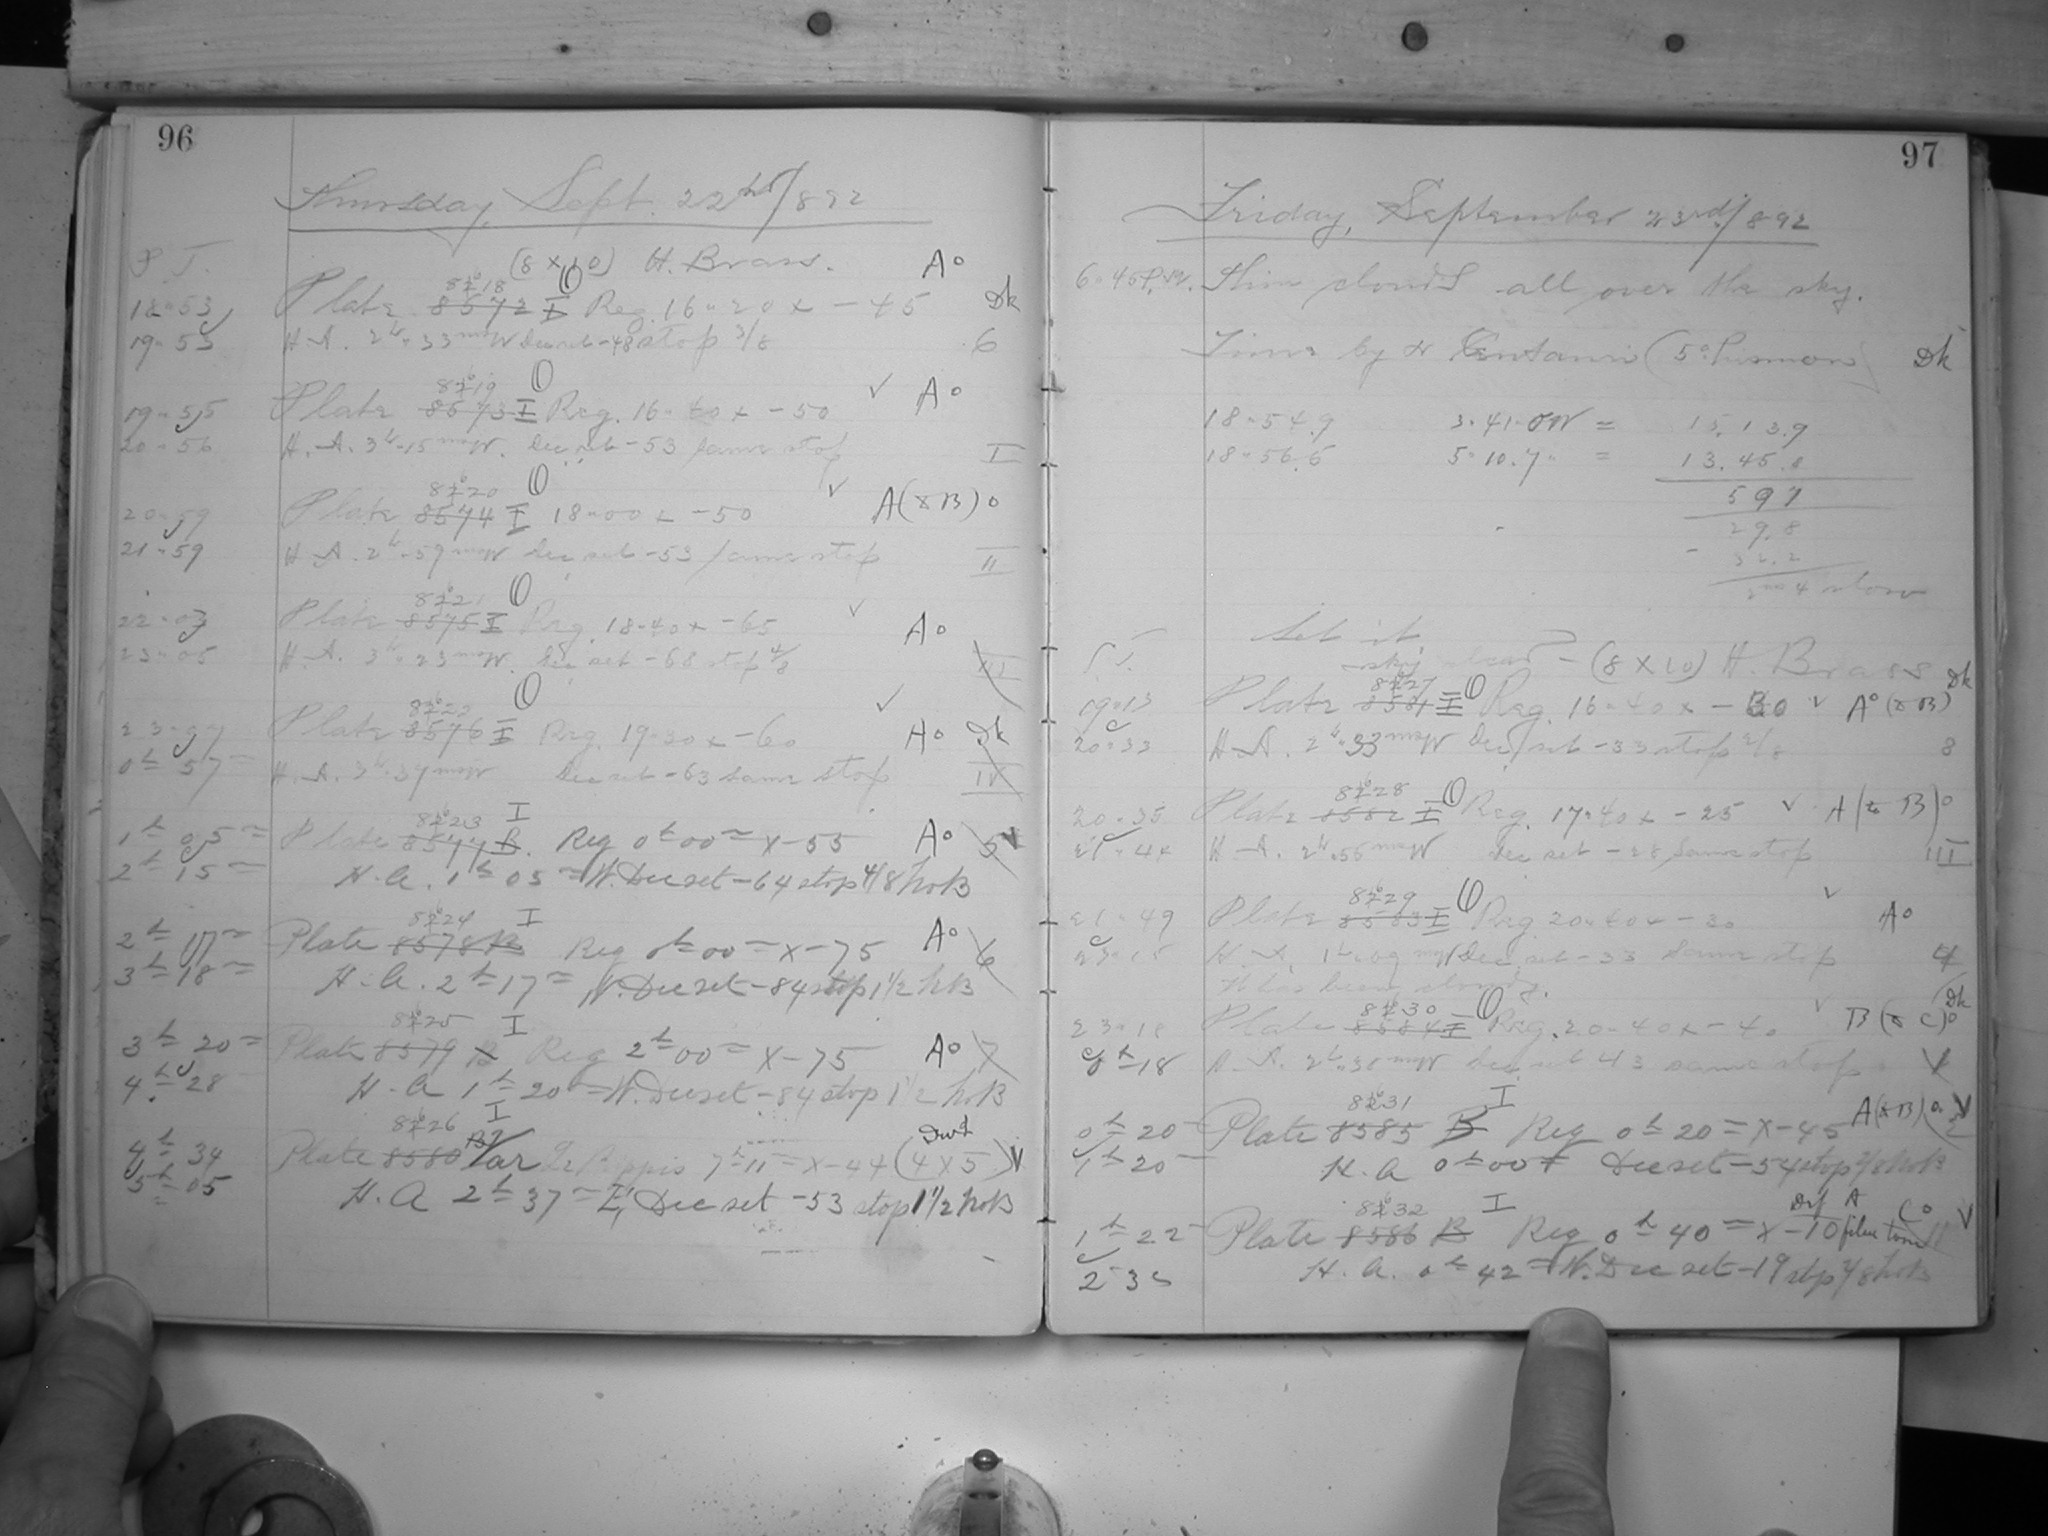 96
Thursday, Sept. 22nd/892
(8 x 10) H. Brass. A°
18-53 Plate 8572 I Reg. 16-20 x -45 Dk
19-53 H.A. 2h-33m W Dec set -48 stop 3/8 6
8619 O
19-55 Plate 8573 I Reg. 16-40 x -50 ✓ A°
20-56 H.A. 3h-15m W. Dec set -53 same stop I
8620 O
20-59 Plate 8574 I 18-00 x -50 ✓ A(& B)°
21-59 H.A. 2h-59m W Dec set -53 same stop II
8621 O
22-03 Plate 8575 I Reg. 18-40 x -65 ✓ A°
23-05 H.A. 3h-23m W. Dec set -68 stop 4/8 III
8622 O
Plate 8576 I Reg. 19-20 x -60 ✓ A° Dk
0h 57m H.A. Dec set -63 same stop IV
8623 I
1h 05m Plate 8577 B. Reg 0h 00m x -55 A° 5
2h 15m H.A. 1h 05m W. Dec set -64 stop 4/8 hoB
8624 I
2h 17m Plate 8578 B Reg 0h 00m x -75 A° 6
3h 18m H.A. 2h 17m W. Dec set -84 stop 1 1/2 hoB
8625 I
3h 20m Plate 8579 B Reg 2h 00m x -75 A° 7
4h 28 H.A 1h 20m W. Dec set -84 stop 1 1/2 hoB
8626 I
4h 34 Plate 8580 Var Puppis 7h 11m x -44 (4 x 5)
5h 05 H.A 2h 37m E, Dec set -53 stop 1 1/2 hoB
97
Friday, September 23rd/892
6-45 P.M. Thin clouds all over the sky.
Time by α Centauri (5° Prismon) Dk
18-54.9 3-41-0W = 15.13.9
18-56.6 5-10.7 = 13.45.8
597
29.8
32.2
2m 4 slow
Set it
(8 x 10) H. Brass Dk
8627 O
19-13 Plate 8581 I Reg. 16-40 x -30 ✓ A°(& B)
20-33 H.A. 2h-33m W Dec set -33 stop 8
8628 O
20-35 Plate 8582 I Reg. 17-40 x -25 ✓ A(to B)°
H.A. 2h-56m W Dec set -28 same stop III
8629 O
21-49 Plate 8583 I Reg. 20-40 x -30 ✓ A°
23-15 H.A. 1h-09m W Dec set -33 same stop 4
It has been cloudy. Dk
8630 O
Plate 8584 I Reg. 20-40 x -40 ✓ B(& C)°
0h 18 H.A. Dec set 43 same stop
8631 I
0h 20 Plate 8585 B Reg 0h 20m x -45 A(& B)°
1h 20 H.A 0h 00m Dec set -54 stop 4/8 hoB
8632 I Def A C°
1h 22 Plate 8586 B Reg 0h 40m x -10 film torn
2 36 H.A. 0h 42m W. Dec set -19 stop 4/8 hoB